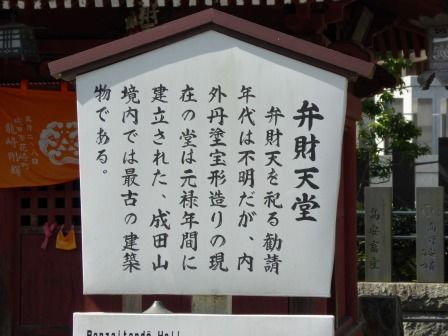 弁財天堂
弁財天を祀る勧請
年代は不明だが、内
外丹塗宝形造りの現
在の堂は元禄年間に
建立された、成田山
境内では最古の建築
物である。
Benzaitendō Hall